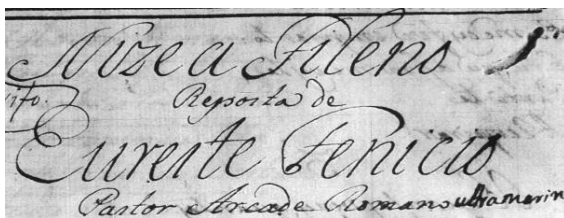 Nize a Fileno
ito.
Reposta de
Eureste Fenicio
Pastor Arcade Romano ultramarin